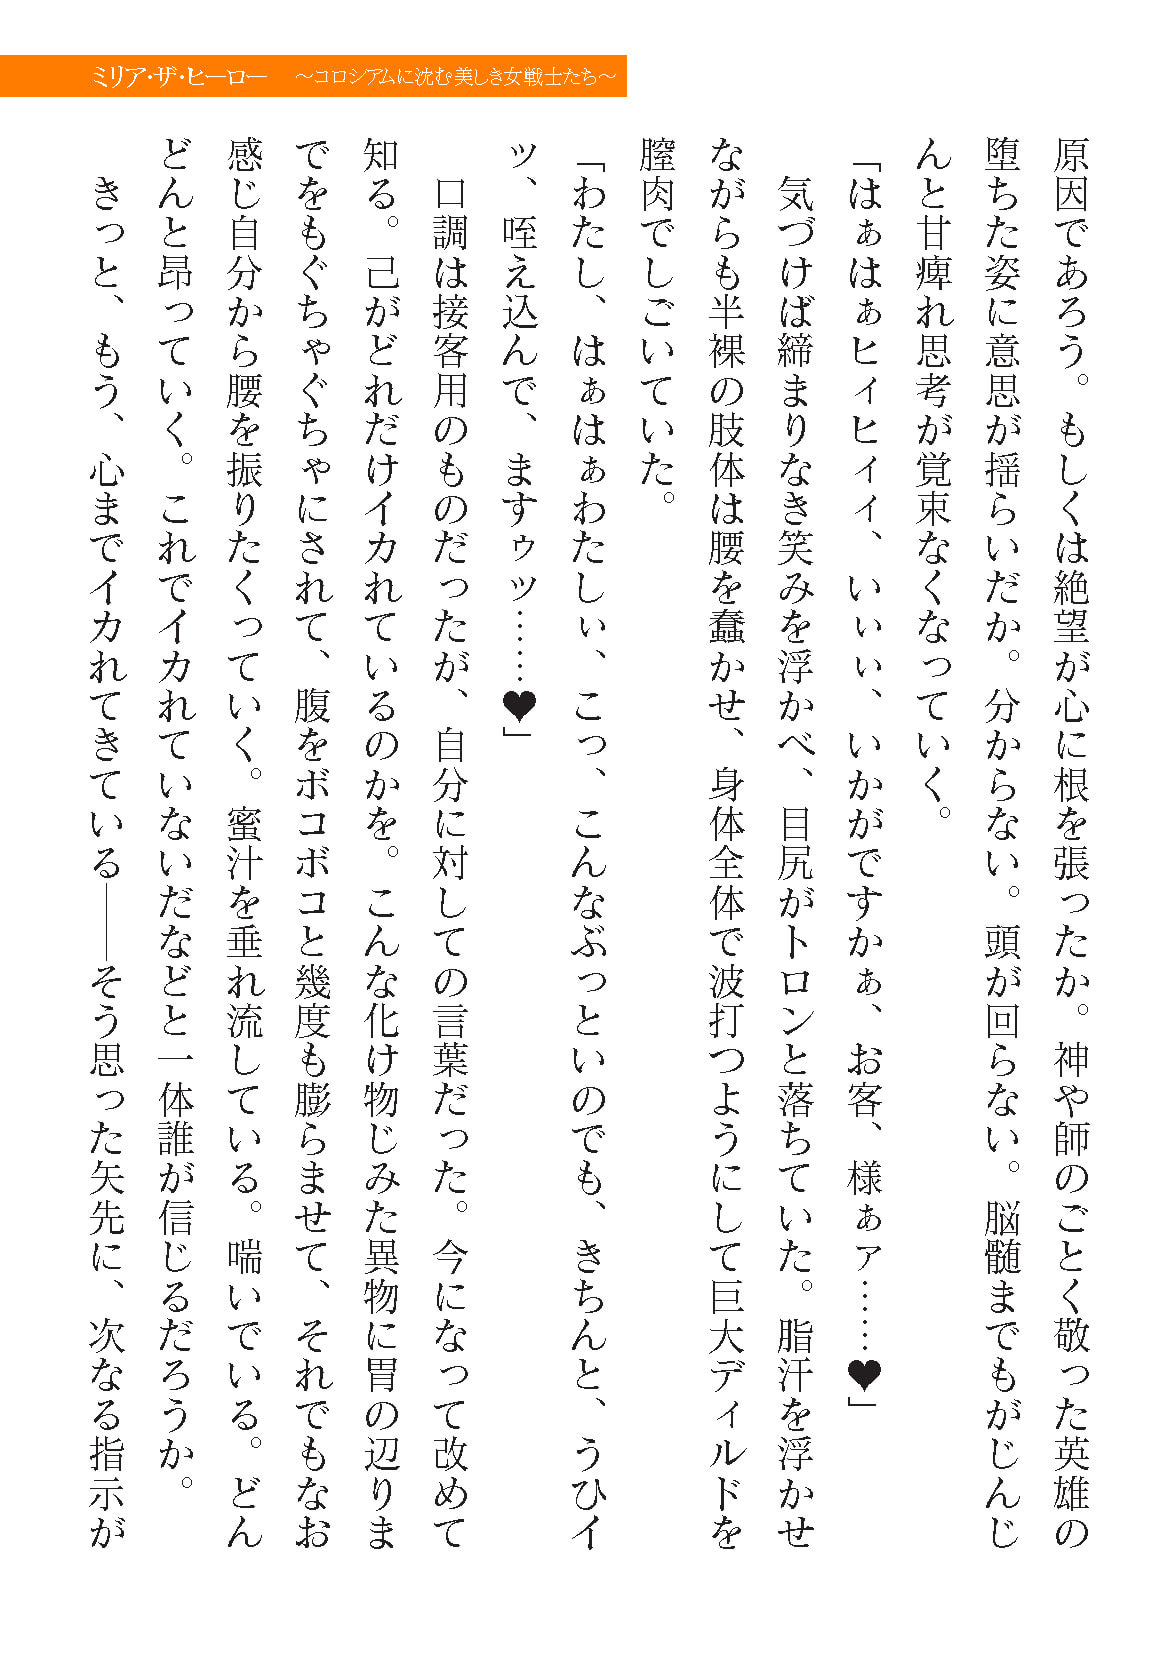 ミリア・ザ・ヒーロー　～コロシアムに沈む美しき女戦士たち～
原因であろう。もしくは絶望が心に根を張ったか。神や師のごとく敬った英雄の
堕ちた姿に意思が揺らいだか。分からない。頭が回らない。脳髄までもがじんじ
んと甘痺れ思考が覚束なくなっていく。
「はぁはぁヒィヒィィ、いぃぃ、いかがですかぁ、お客、様ぁァ……♥」
　気づけば締まりなき笑みを浮かべ、目尻がトロンと落ちていた。脂汗を浮かせ
ながらも半裸の肢体は腰を蠢かせ、身体全体で波打つようにして巨大ディルドを
膣肉でしごいていた。
「わたし、はぁはぁわたしぃ、こっ、こんなぶっといのでも、きちんと、うひイ
ッ、咥え込んで、ますゥッ……♥」
　口調は接客用のものだったが、自分に対しての言葉だった。今になって改めて
知る。己がどれだけイカれているのかを。こんな化け物じみた異物に胃の辺りま
でをもぐちゃぐちゃにされて、腹をボコボコと幾度も膨らませて、それでもなお
感じ自分から腰を振りたくっていく。蜜汁を垂れ流している。喘いでいる。どん
どんと昂っていく。これでイカれていないだなどと一体誰が信じるだろうか。
　きっと、もう、心までイカれてきている――そう思った矢先に、次なる指示が